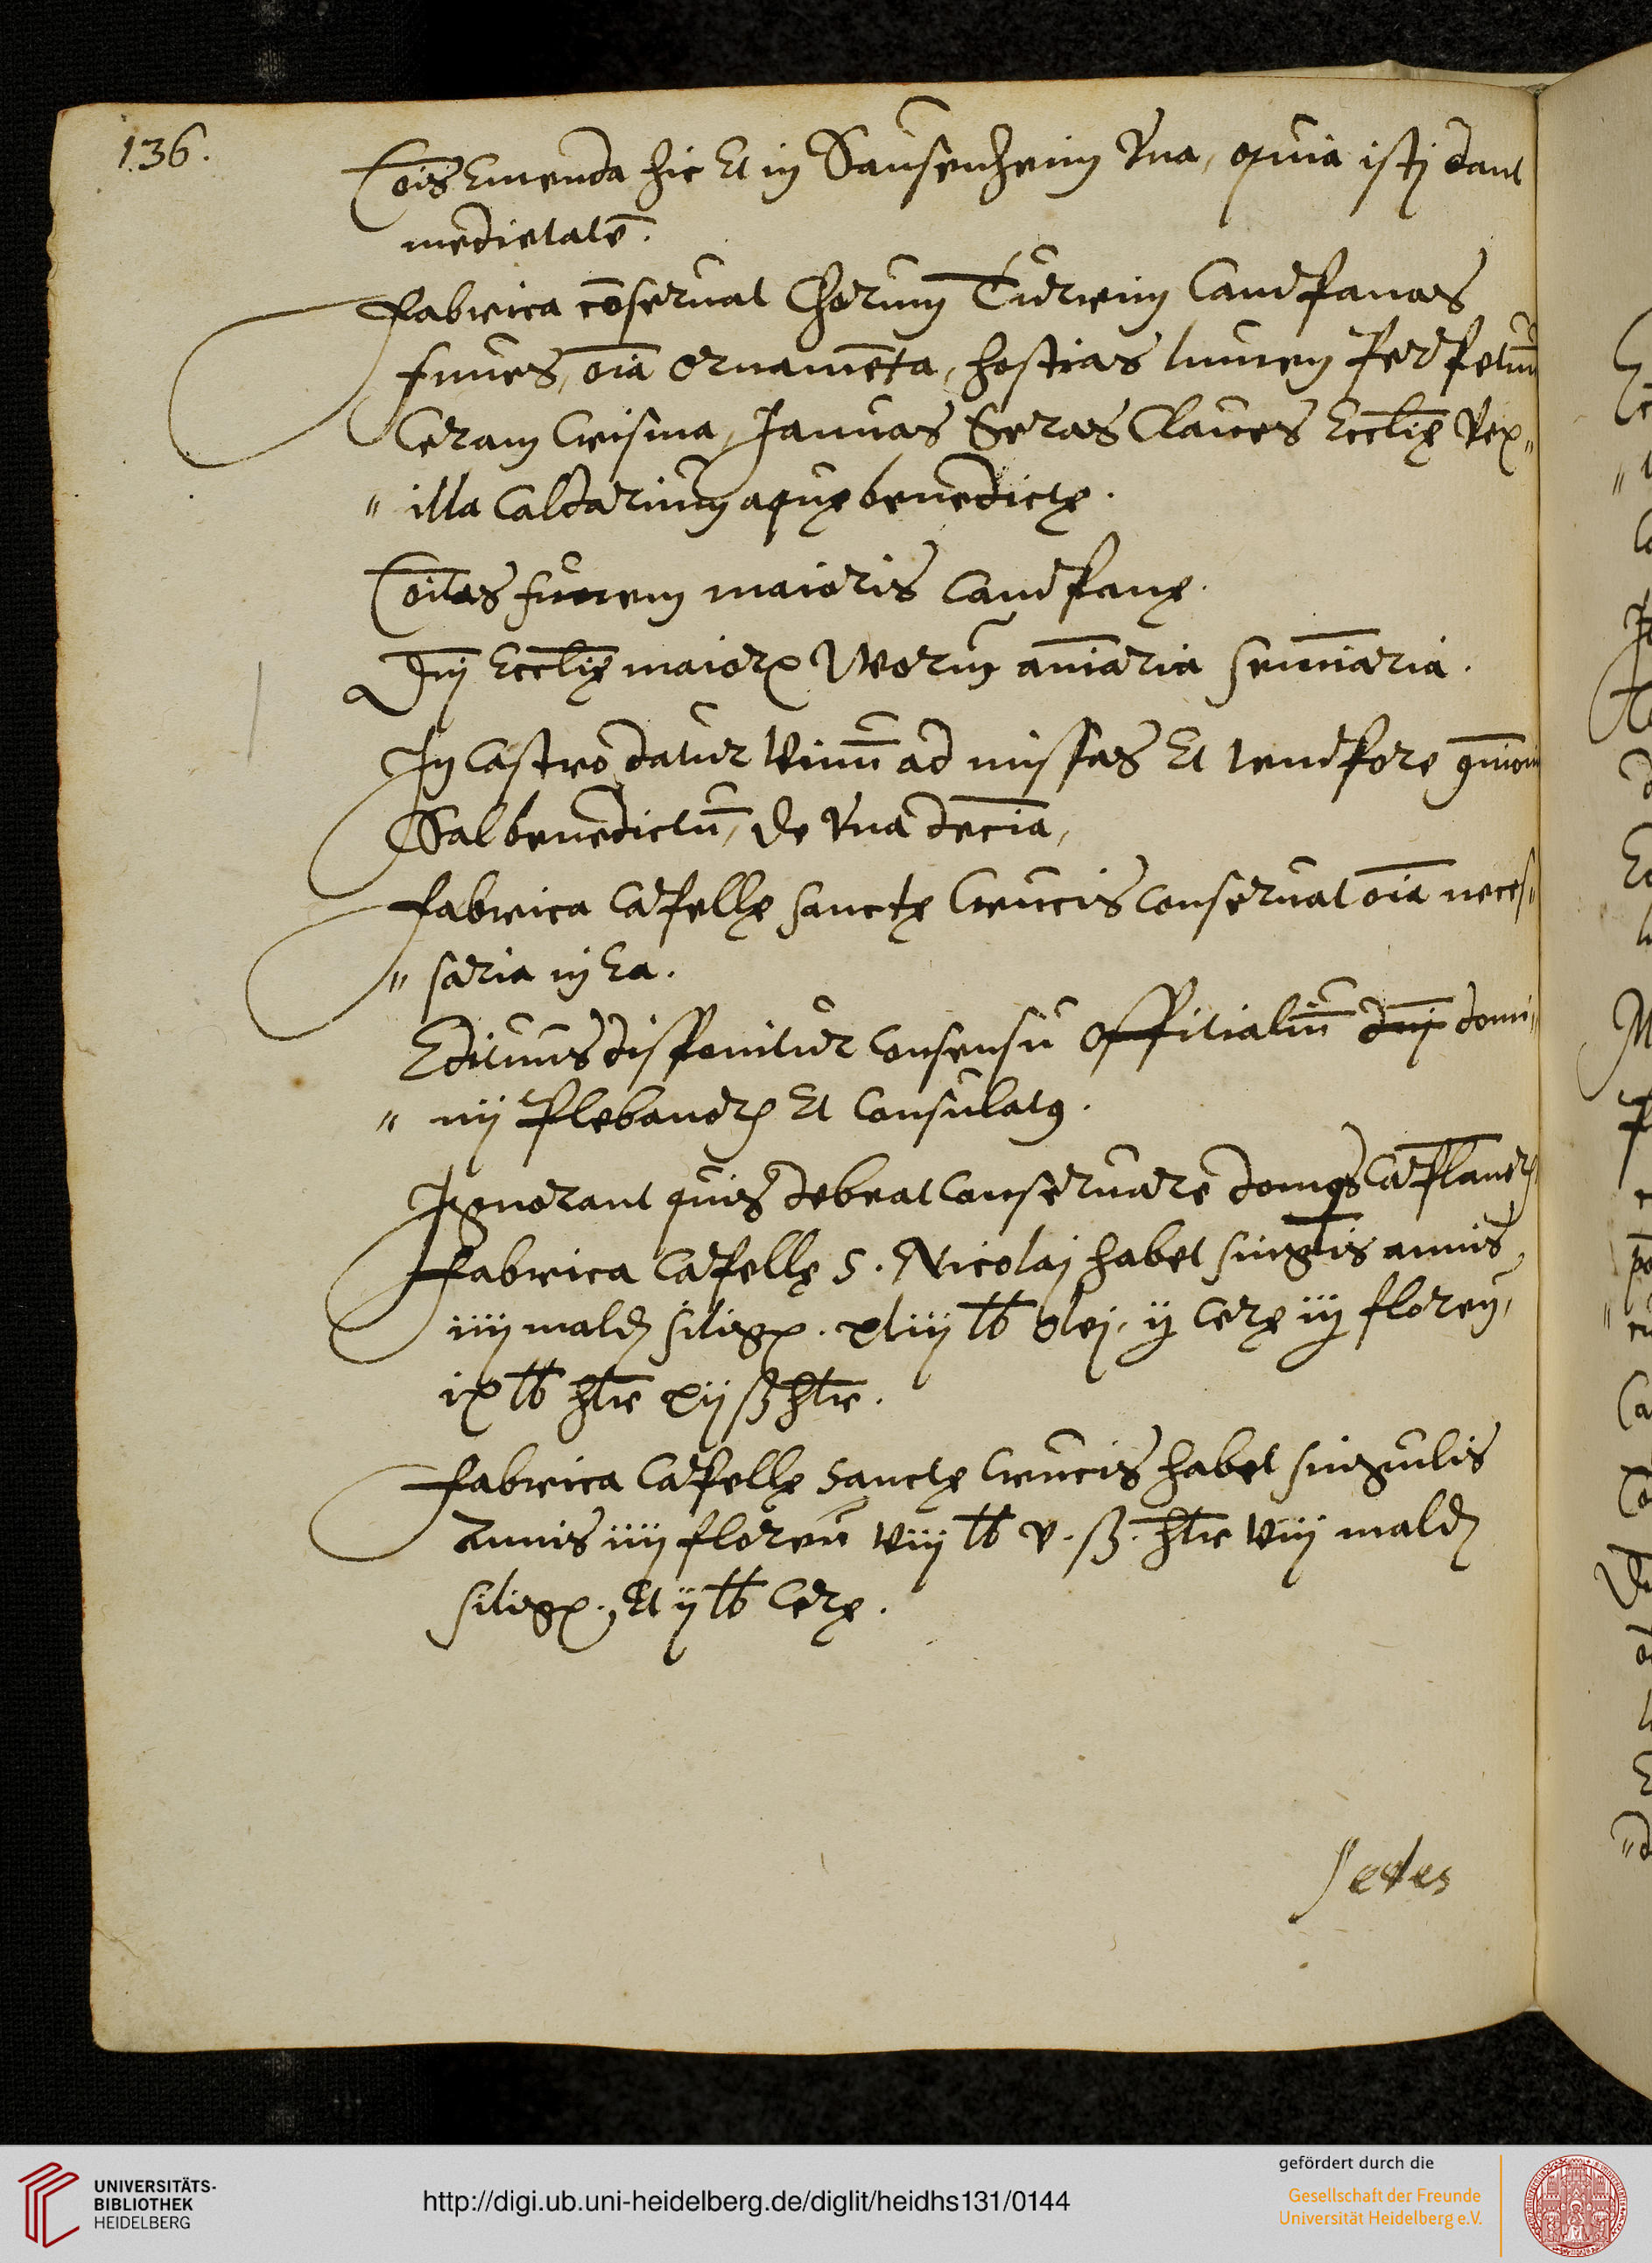 136.
Cōis Emenda hic Et in Sausenheim Vna, quia istj dant
medietatē.
Fabrica cōseruat Chorum Turrim Campanas
funes, oīa Ornamēta, hostias lumen perpetuū
Ceram Crisma, Januas Seras Claues Eccliȩ Vex„
„ illa Caldarium aquȩ benedictȩ.
Cōitas funem maioris Campanȩ.
Dn̄j Eccliȩ maioris Worm̄ am̄aria sem̄aria.
In Castro datur Vinū ad missas Et tempore
Sal benedictū, de Vna decīa,
Fabrica Capellȩ Sanctȩ Crucis Conseruat oīa neces„
„ saria in Ea.
Edituus disponitur Consensu Offitialiū dn̄j domi„
„ nij plebanorum Et Consulatꝰ.
Ignorant quis debeat Conseruare domos Capl̄anorum
Fabrica Capellȩ S. Nicolaj habet singl̄is annis
iiij mald siligꝭ. xliij ℔ Olej, ij Cerȩ iij floren,
ix ℔ hlr̄ xij ß hlr̄.
Fabrica Capellȩ Sanctȩ Crucis habet singulis
Annis iiij florenū viij ℔ v. ß. hlr̄ viij mald
siligꝭ., Et ij ℔ Cerȩ.
Sedes
UNIVERSITÄTS-
BIBLIOTHEK
HEIDELBERG
http://digi.ub.uni-heidelberg.de/diglit/heidhs131/0144
gefördert durch die
Gesellschaft der Freunde
Universität Heidelberg e.V.